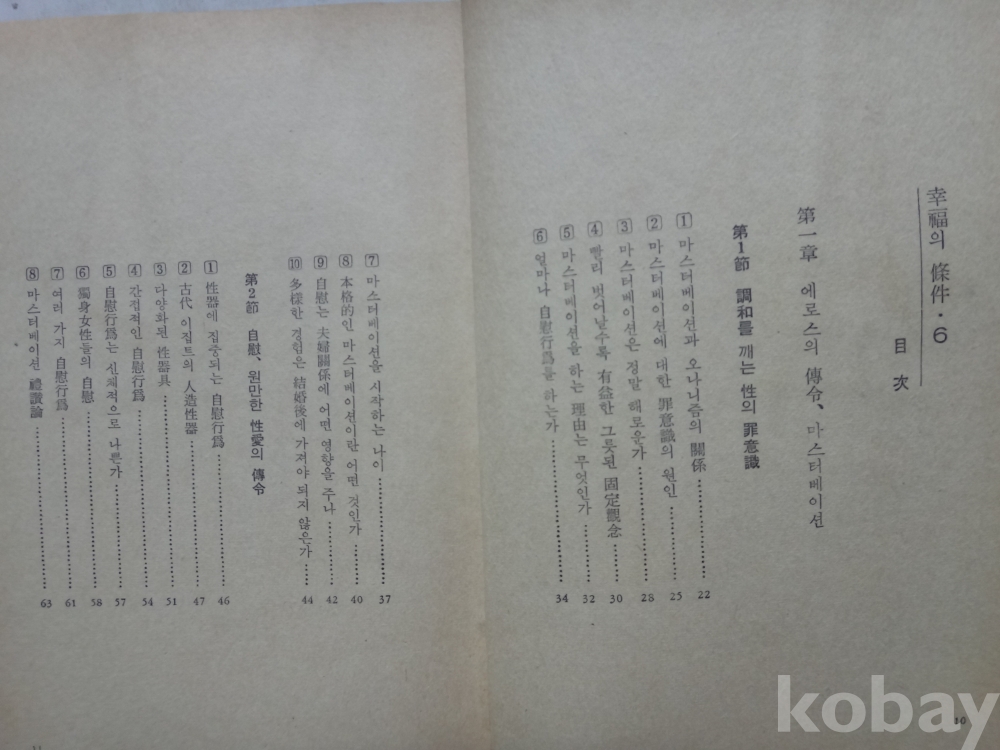 幸福의 條件・6
目次
第一章 에로스의 傳令、마스터베이션
第1節 調和를 깨는 性의 罪意識
1 마스터베이션과 오나니즘의 關係 22
2 마스터베이션에 대한 罪意識의 원인 25
3 마스터베이션은 정말 해로운가 28
4 빨리 벗어날수록 有益한 그릇된 固定觀念 30
5 마스터베이션을 하는 理由는 무엇인가 32
6 얼마나 自慰行爲를 하는가 34
10
7 마스터베이션을 시작하는 나이 37
8 本格的인 마스터베이션이란 어떤 것인가 40
9 自慰는 夫婦關係에 어떤 영향을 주나 42
10 多樣한 경험은 結婚後에 가져야 되지 않은가 44
第2節 自慰、원만한 性愛의 傳令
1 性器에 집중되는 自慰行爲 46
2 古代 이집트의 人造性器 47
3 다양화된 性器具 51
4 간접적인 自慰行爲 54
5 自慰行爲는 신체적으로 나쁜가 57
6 獨身女性들의 自慰 58
7 여러 가지 自慰行爲 61
8 마스터베이션 禮讃論 63
kobay